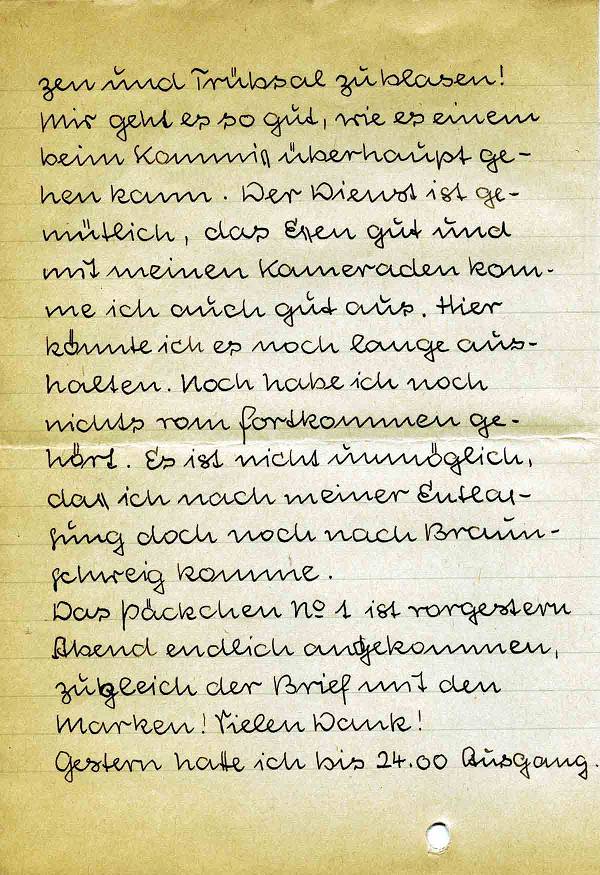 zen und Trübsal zu blasen!
Mir geht es so gut, wie es einem
beim Kommiß überhaupt ge-
hen kann. Der Dienst ist ge-
mütlich, das Essen gut und
mit meinen Kameraden kom-
me ich auch gut aus. Hier
könnte ich es noch lange aus-
halten. Noch habe ich noch
nichts vom fortkommen ge-
hört. Es ist nicht unmöglich,
daß ich nach meiner Entlas-
sung doch noch nach Braun-
schweig komme.
Das Päckchen No 1 ist vorgestern
Abend endlich angekommen,
zugleich der Brief mit den
Marken! Vielen Dank!
Gestern hatte ich bis 24.00 Ausgang.